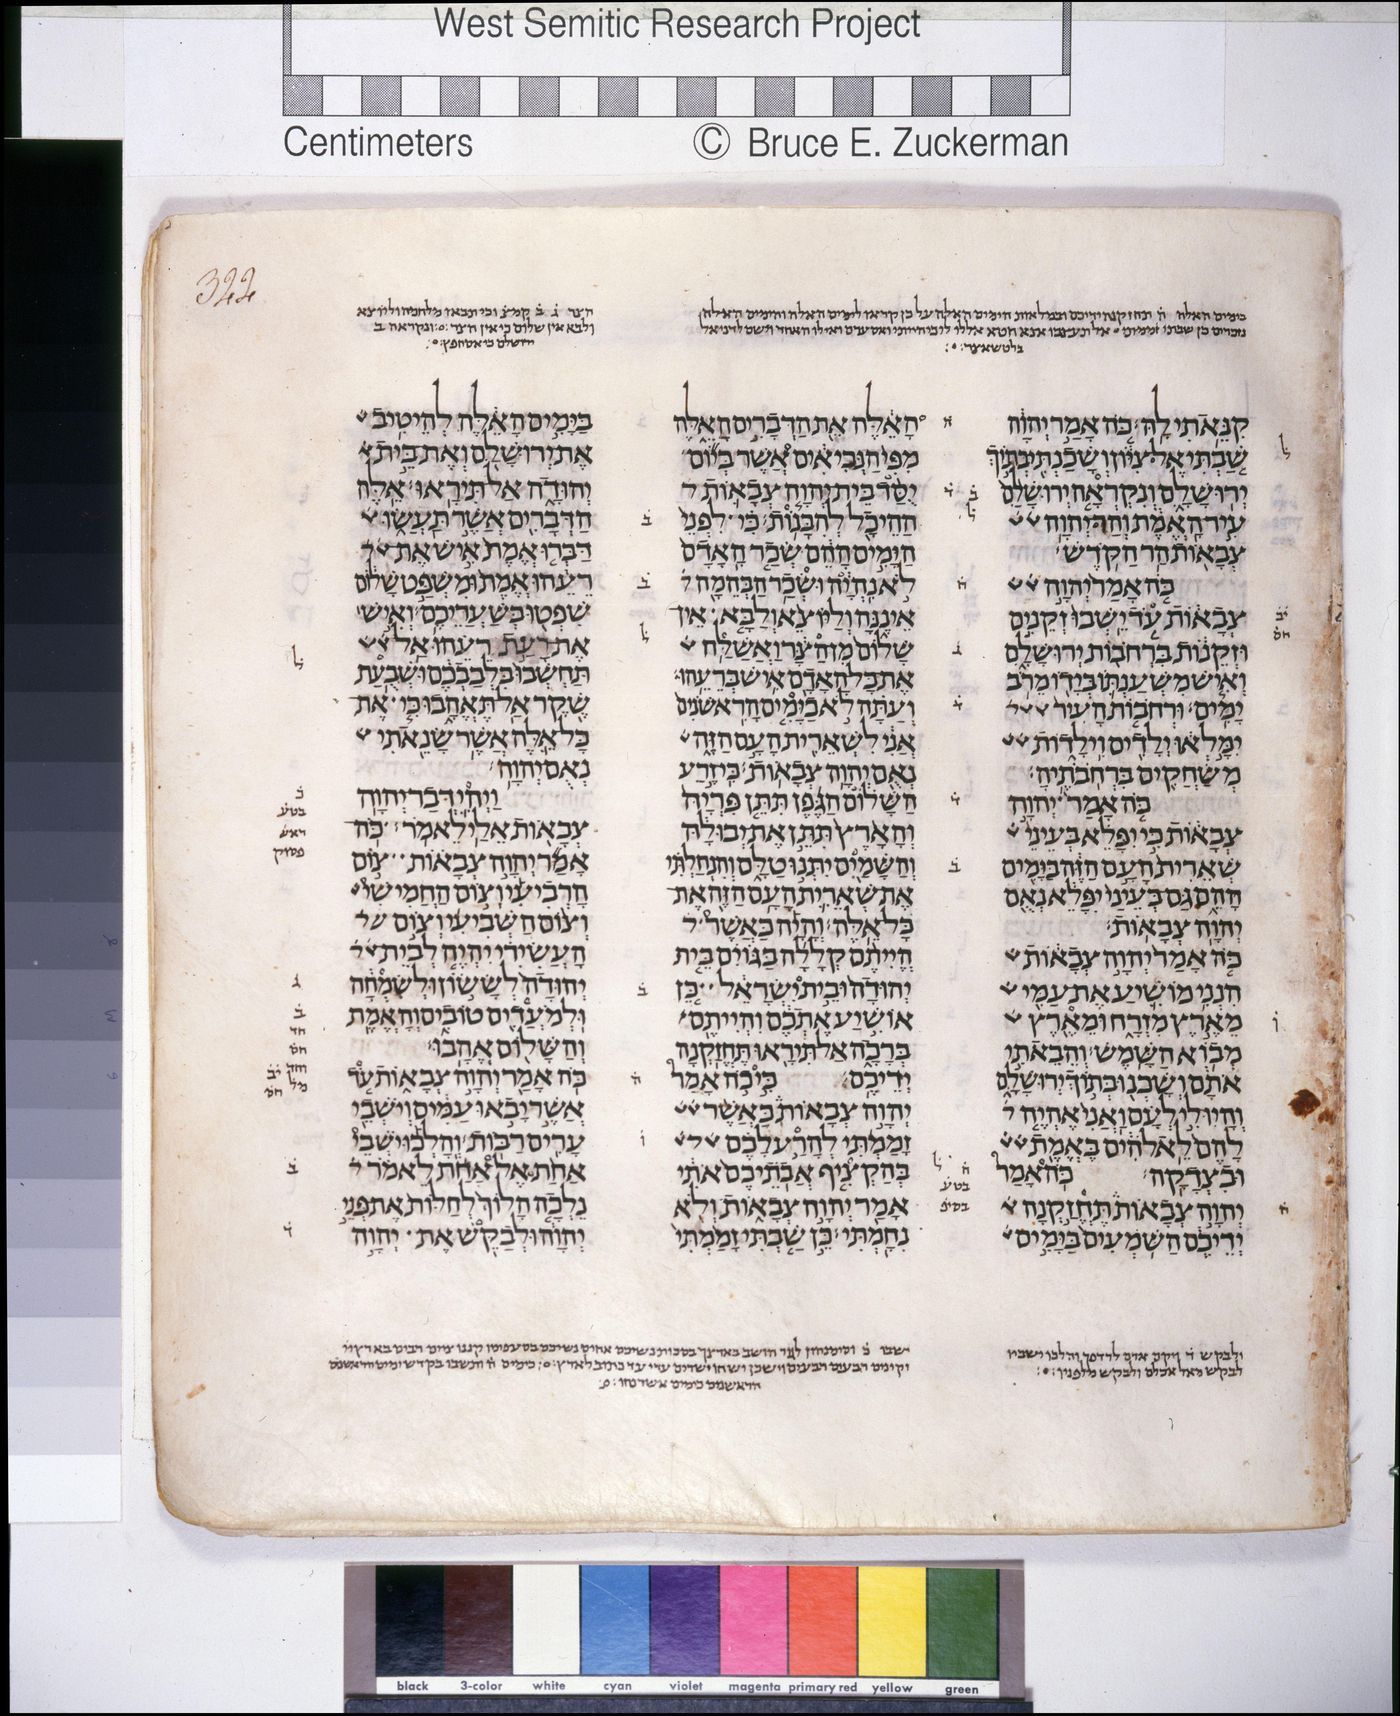 West Semitic Research Project
Centimeters © Bruce E. Zuckerman
322
קנאתי לה כה אמר יהוה
שבתי אל ציון ושכנתי בתוך
ירושלם ונקראה ירושלם
עיר האמת והר יהוה
צבאות הר הקדש׃
כה אמר יהוה
צבאות עד ישבו זקנים
וזקנות ברחבות ירושלם
ואיש משענתו בידו מרב
ימים׃ ורחבות העיר
ימלאו ילדים וילדות
משחקים ברחבתיה׃
כה אמר יהוה
צבאות כי יפלא בעיני
שארית העם הזה בימים
ההם גם בעיני יפלא נאם
יהוה צבאות׃
כה אמר יהוה צבאות
הנני מושיע את עמי
מארץ מזרח ומארץ
מבוא השמש׃ והבאתי
אתם ושכנו בתוך ירושלם
והיו לי לעם ואני אהיה
להם לאלהים באמת
ובצדקה׃ כה אמר
יהוה צבאות תחזקנה
ידיכם השמעים בימים
האלה את הדברים האלה
מפי הנביאים אשר ביום
יסד בית יהוה צבאות
ההיכל להבנות׃ כי לפני
הימים ההם שכר האדם
לא נהיה ושכר הבהמה
איננה וליוצא ולבא אין
שלום מן הצר ואשלח
את כל האדם איש ברעהו׃
ועתה לא כימים הראשנים
אני לשארית העם הזה
נאם יהוה צבאות׃ כי זרע
השלום הגפן תתן פריה
והארץ תתן את יבולה
והשמים יתנו טלם והנחלתי
את שארית העם הזה את
כל אלה׃ והיה כאשר
הייתם קללה בגוים בית
יהודה ובית ישראל כן
אושיע אתכם והייתם
ברכה אל תיראו תחזקנה
ידיכם׃ כי כה אמר
יהוה צבאות כאשר
זממתי להרע לכם
בהקציף אבתיכם אתי
אמר יהוה צבאות ולא
נחמתי׃ כן שבתי זממתי
בימים האלה להיטיב
את ירושלם ואת בית
יהודה אל תיראו׃ אלה
הדברים אשר תעשו
דברו אמת איש את
רעהו אמת ומשפט שלום
שפטו בשעריכם׃ ואיש
את רעת רעהו אל
תחשבו בלבבכם ושבעת
שקר אל תאהבו כי את
כל אלה אשר שנאתי
נאם יהוה׃
ויהי דבר יהוה
צבאות אלי לאמר׃ כה
אמר יהוה צבאות צום
הרביעי וצום החמישי
וצום השביעי וצום
העשירי יהיה לבית
יהודה לששון ולשמחה
ולמעדים טובים והאמת
והשלום אהבו׃
כה אמר יהוה צבאות עד
אשר יבאו עמים וישבי
ערים רבות׃ והלכו ישבי
אחת אל אחת לאמר
נלכה הלוך לחלות את פני
יהוה ולבקש את יהוה
black 3-color white cyan violet magenta primary red yellow green